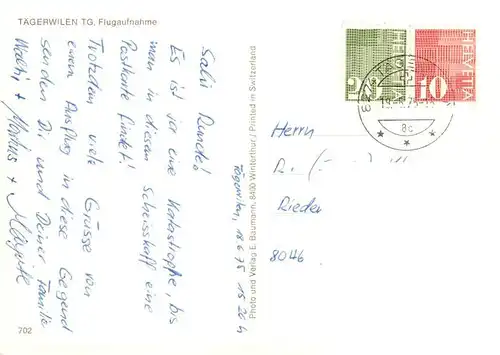 TÄGERWILEN TG, Flugaufnahme
Salü Runde!
Es ist ja eine Katastrophe, bis
man in diesem Scheisskaff eine
Postkarte findet!
Trotzdem viele Grüsse von
einem Ausflug in diese Gegend
senden Dir und Deiner Familie
Walti, + Markus +
Tägerwilen, 18 6 75 15 20 h
Photo und Verlag E. Baumann, 8400 Winterthur / Printed in Switzerland
702
HELVETIA
HELVETIA
10
Herrn
R.
Rieden
8046